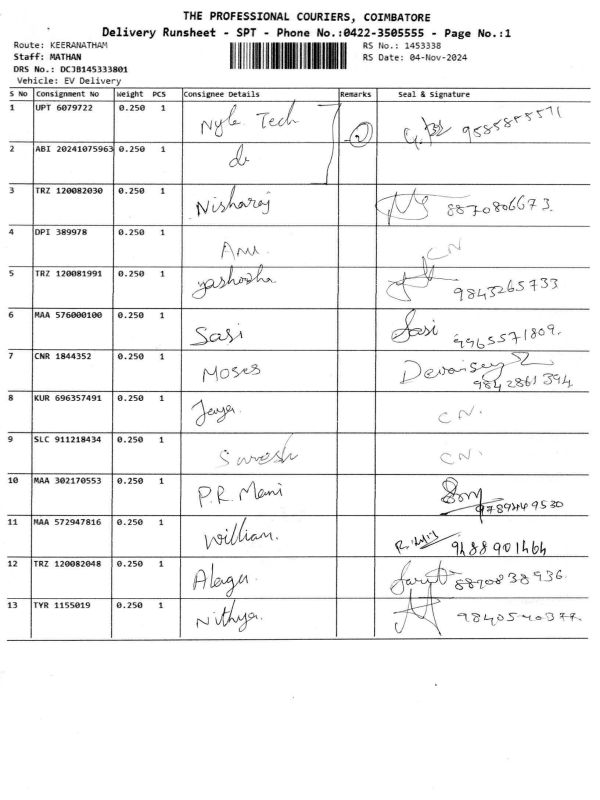 THE PROFESSIONAL COURIERS, COIMBATORE
Delivery Runsheet - SPT - Phone No.:0422-3505555 - Page No.:1
Route: KEERANATHAM RS No.: 1453338
Staff: MATHAN RS Date: 04-Nov-2024
DRS No.: DCJB145333801
Vehicle: EV Delivery
S No Consignment No Weight PCS Consignee Details Remarks Seal & Signature
1 UPT 6079722 0.250 1 Nyle Tech 2
2 ABI 20241075963 0.250 1 do
3 TRZ 120082030 0.250 1 Nisharaj 8870806673.
4 DPI 389978 0.250 1 Anu. CN
5 TRZ 120081991 0.250 1 yashodha 9843265733
6 MAA 576000100 0.250 1 Sasi Sasi 9965571809.
7 CNR 1844352 0.250 1 Moses 9842861394
8 KUR 696357491 0.250 1 Jaya CN.
9 SLC 911218434 0.250 1 Suresh CN.
10 MAA 302170553 0.250 1 P.R. Mani
11 MAA 572947816 0.250 1 William. 9488901464
12 TRZ 120082048 0.250 1 Alagu 8890838936.
13 TYR 1155019 0.250 1 Nithya 9840540377.